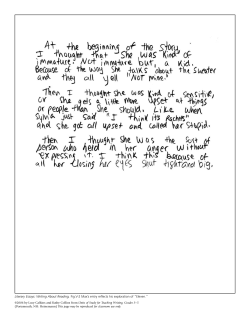 At the beginning of the story,
I thought that she was kind of
immature. Not immature but, a kid.
Because of the way she talks about the sweater
and they all yell "Not mine."
Then I thought she was kind of sensitive,
or she gets a little more upset at things
or people than she should. Like when
Sylvia just said "I think its Rachels"
and she got all upset and called her stupid.
Then I thought she was the sort of
person who held in her anger without
expressing it. I think this because of
all her closing her eyes shut tight and big.